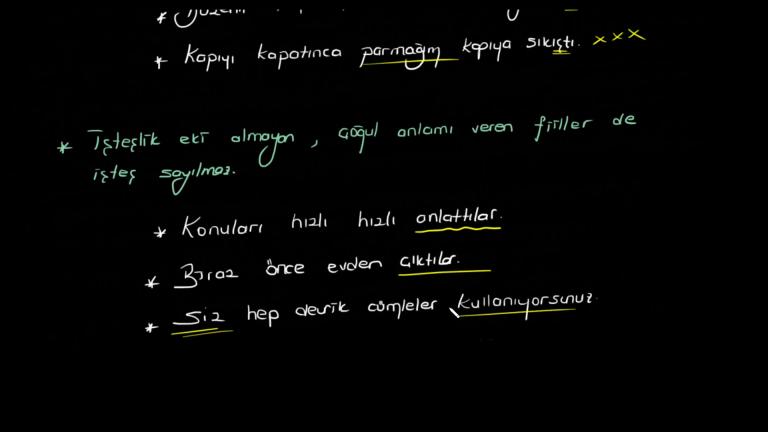 * Kapıyı kapatınca parmağım kapıya sıkıştı. xxx
* İşteşlik eki almayan, çoğul anlamı veren fiiller de
işteş sayılmaz.
* Konuları hızlı hızlı anlattılar.
* Biraz önce evden çıktılar.
* Siz hep devrik cümleler kullanıyorsunuz.